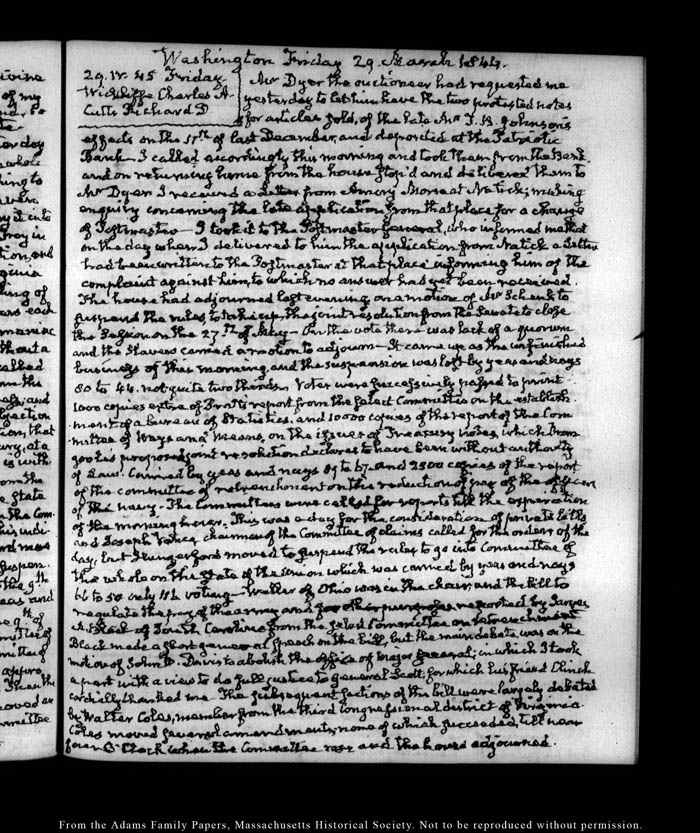 Washington Friday 29. March 1844.
29. IV. 45 Friday
Wickliffe Charles A.
Cutts Richard D
Mr Dyer the auctioneer had requested me
yesterday to let him have the two protested notes
for articles sold, of the late Mr J. B. Johnson's
effects on the 11th of last December, and deposited at the Patriotic
Bank. I called accordingly this morning and took them from the Bank.
and on returning home from the house stop'd and delivered them to
Mr Dyer. I received a Letter from Amory Morse at Natick; making
enquiry concerning the late application from that place for a change
of Postmaster — I took it to the Postmaster General, who informed me that
on the day when I delivered to him the application from Natick a Letter
had been written to the Postmaster at that place informing him of the
complaint against him, to which no answer had yet been received.
The house had adjourned last evening on a motion of Mr Schenck to
suspend the rules, to take up the joint resolution from the Senate to close
the Session on the 27th of May — On the vote there was lack of a quorum
and the Slavers carried a motion to adjourn — It came up as the unfinished
business of this morning, and the suspension was lost by yeas and nays
80 to 44. not quite two thirds. Votes were successively passed to print
1000 copies extra of report from the Select Committee on the establish-
ment of a bureau of Statistics, and 10000 copies of the report of the Com-
mittee of Ways and Means, on the issues of Treasury notes, which
proposed joint resolution declares to have been without authority
of Law. Carried by yeas and nays 89 to 67. and 2500 copies of the report
of the committee of retrenchment on the reduction of pay of the officers
of the navy. The Committees were called for reports till the expiration
of the morning hour. This was a day for the consideration of private bills
and Joseph Vance, chairman of the Committee of claims called for the orders of the
day, but Hungerford moved to suspend the rules to go into Committee of
the whole on the State of the Union which was carried by yeas and nays
66 to 50 only 116 voting — Weller of Ohio was in the chair, and the bill to
regulate the pay of the army and for other purposes reported by
A. Black of South Carolina from the Select Committee on retrenchment
Black made a short speech on the bill, but the main debate was on the
motion of John W. Davis to abolish the office of Major General; in which I took
a part with a view to do full justice to General Scott, for which his friend Clinch
cordially thanked me. The subsequent sections of the bill were largely debated
by Walter Coles, member from the third Congressional district of Virginia
Coles moved several amendments, none of which succeeded, till near
four O'Clock when the Committee rose and the house adjourned.
From the Adams Family Papers, Massachusetts Historical Society. Not to be reproduced without permission.